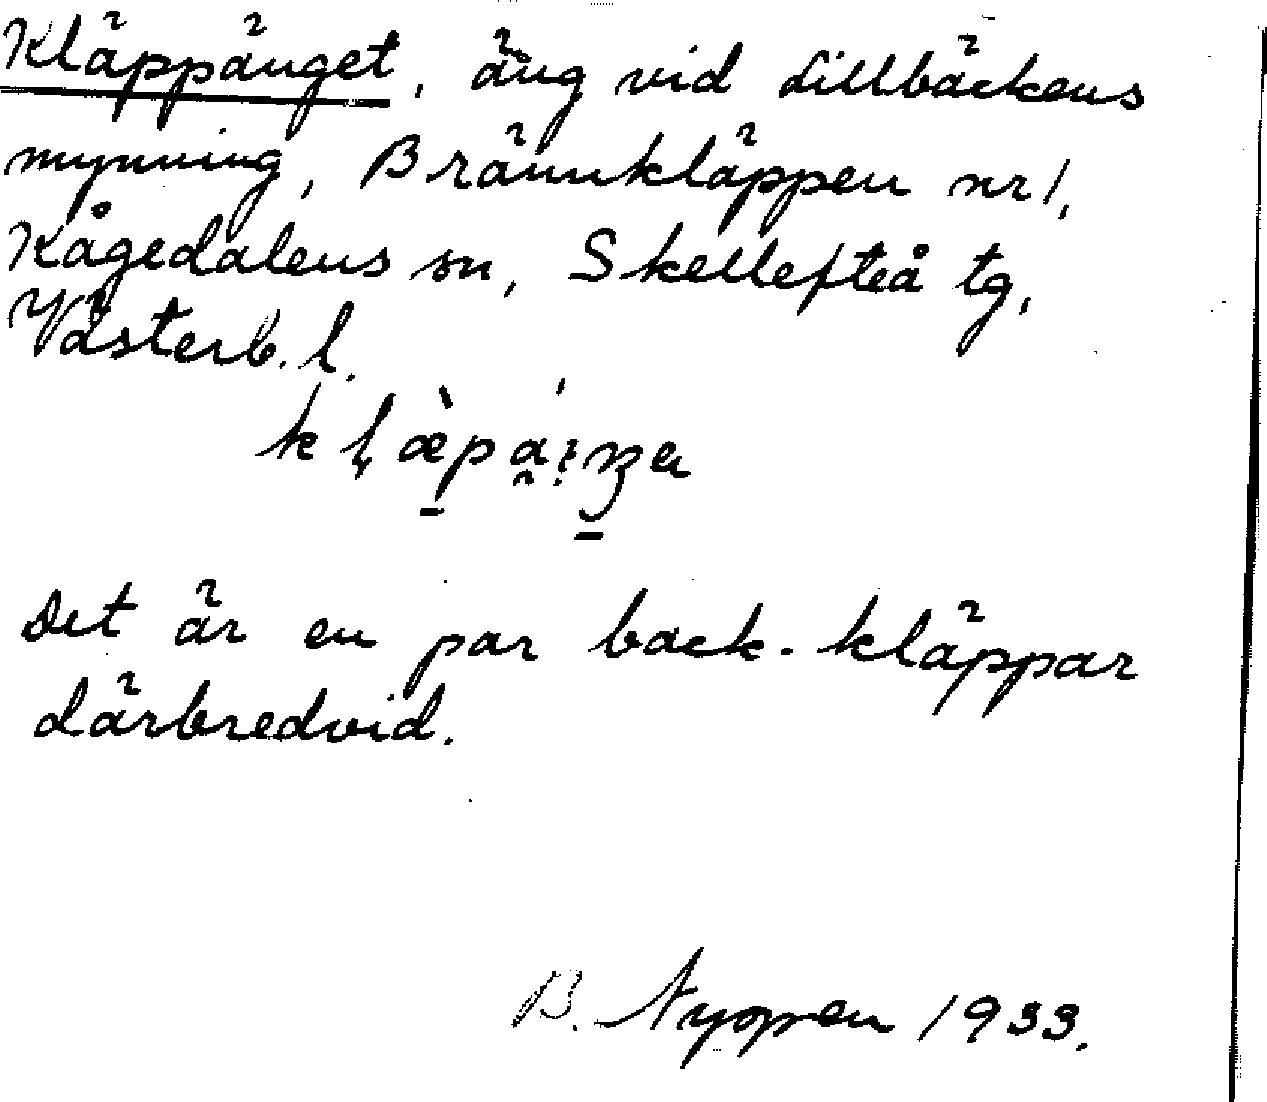 Kläppänget, äng vid Lillbäckens
mynning, Brännkläppen nr 1,
Kågedalens sn, Skellefteå tg,
Västerb. l.
Det är en par back-kläppar
därbredvid.
B. Nyppen 1933.